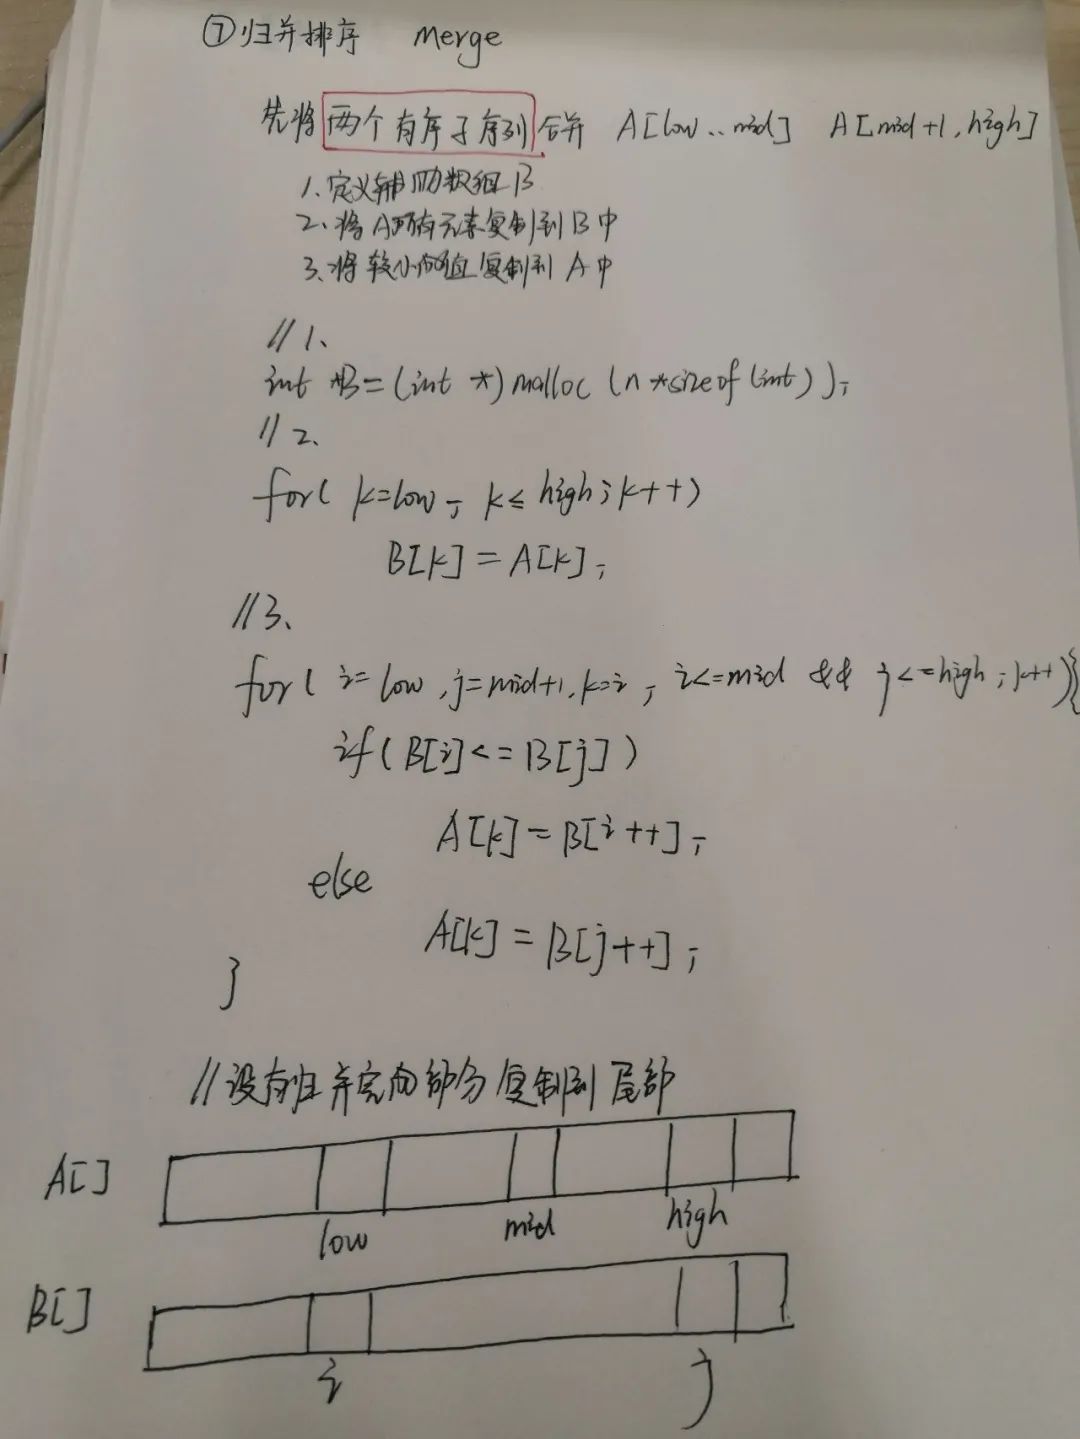 ⑦归并排序 merge
先将两个有序子序列合并 A[low..mid] A[mid+1,high]
1.定义辅助数组B
2.将A所有元素复制到B中
3.将较小的值复制到A中
//1、
int *B=(int *)malloc(n*sizeof(int));
//2、
for( k=low; k≤high;k++)
B[k]=A[k];
//3、
for( i=low,j=mid+1,k=i; i<=mid && j<=high;k++){
if(B[i]<=B[j])
A[k]=B[i++];
else
A[k]=B[j++];
}
//没有归并完的部分复制到尾部
A[]
low mid high
B[]
i j